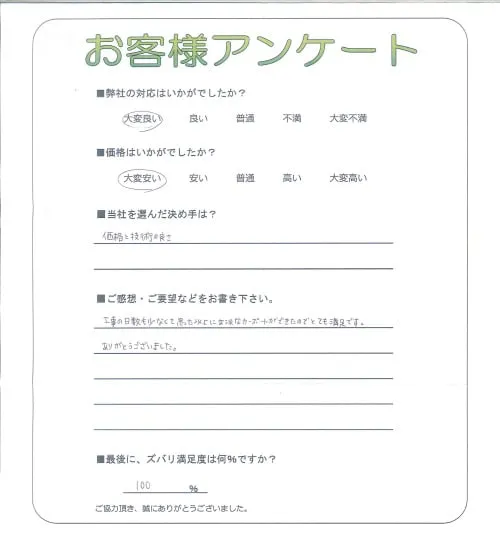 お客様アンケート
■弊社の対応はいかがでしたか？
大変良い 良い 普通 不満 大変不満
■価格はいかがでしたか？
大変安い 安い 普通 高い 大変高い
■当社を選んだ決め手は？
価格と技術の良さ
■ご感想・ご要望などをお書き下さい。
工事の日数も少なくて思った以上に立派なカーポートができたのでとても満足です。
ありがとうございました。
■最後に、ズバリ満足度は何%ですか？
100 %
ご協力頂き、誠にありがとうございました。